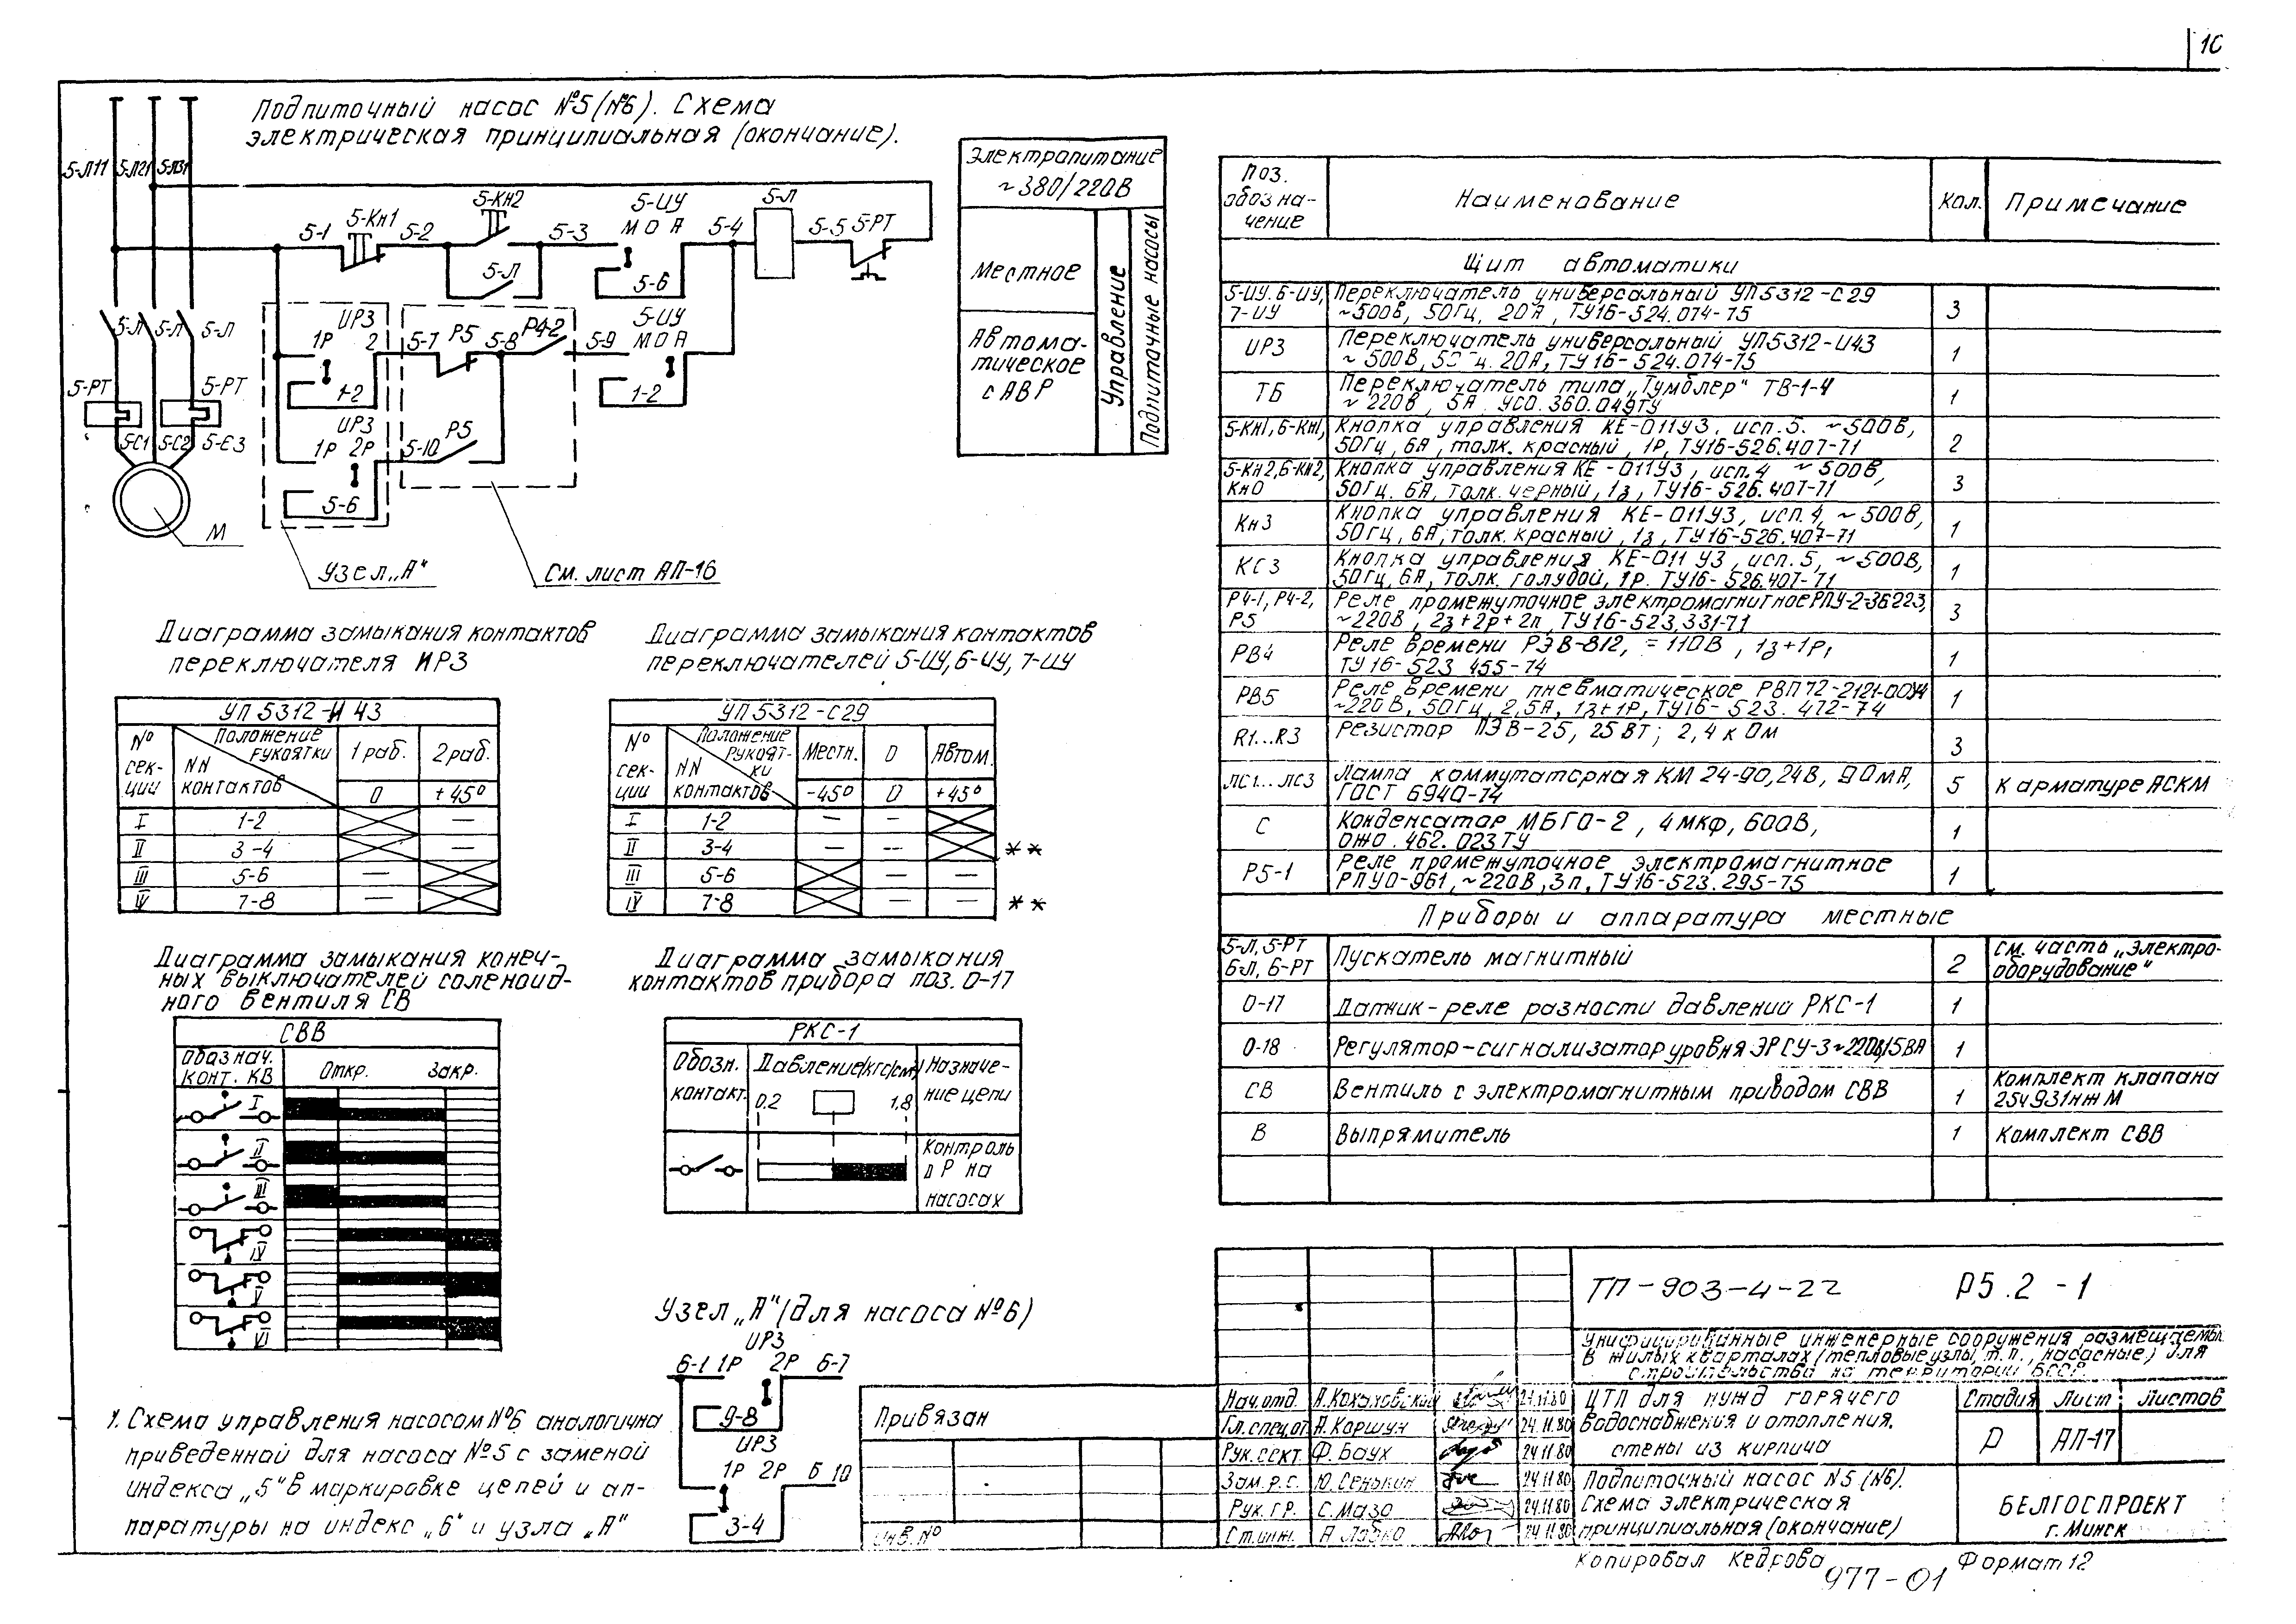 10
Подпиточный насос №5(№6). Схема
электрическая принципиальная (окончание).
5-Л11 5-Л21 5-Л31
5-1 5-Кн1 5-2 5-Кн2 5-3 5-ИУ 5-4 5-Л 5-5 5-РТ
М О А
5-Л
5-6
5-Л 5-Л 5-Л
ИРЗ
1Р 2
5-7 Р5 5-8 Р4-2 5-9 5-ИУ
М О А
1-2
1-2
5-РТ 5-РТ
ИРЗ
1Р 2Р
5-10 Р5
5-С1 5-С2 5-С3
5-6
М
Узел „А"
См. лист АП-16
Электропитание
~380/220В
Местное
Автома-
тическое
с АВР
Управление
Подпиточные насосы
Диаграмма замыкания контактов
переключателя ИРЗ
УП 5312-И 43
№ сек-ции
Положение рукоятки
NN контактов
1 раб. 2 раб.
0 +45°
I 1-2 —
II 3-4 —
III 5-6 —
IV 7-8 —
Диаграмма замыкания контактов
переключателей 5-ИУ, 6-ИУ, 7-ИУ
УП 5312-С29
№ сек-ции
Положение рукоят-ки
NN контактов
Местн. 0 Автом.
-45° 0 +45°
I 1-2 — —
II 3-4 — — **
III 5-6 — —
IV 7-8 — — **
Диаграмма замыкания конеч-
ных выключателей соленоид-
ного вентиля СВ
СВВ
Обознач.
конт. КВ
Откр. Закр.
I
II
III
IV
V
VI
Диаграмма замыкания
контактов прибора поз. 0-17
РКС-1
Обозн.
контакт.
Давление(кгс/см²)
0.2 1,8
Назначе-
ние цепи
Контроль
ΔР на
насосах
Узел „А" (для насоса №6)
ИРЗ
6-1 1Р 2Р 6-7
9-8
ИРЗ
1Р 2Р 6 10
3-4
1. Схема управления насосом №6 аналогична
приведенной для насоса №5 с заменой
индекса „5" в маркировке цепей и ап-
паратуры на индекс „6" и узла „А"
Поз. обозна-чение Наименование Кол. Примечание
Щит автоматики
5-ИУ, 6-ИУ, Переключатель универсальный УП5312-С29
7-ИУ ~500В, 50Гц, 20А, ТУ16-524.074-75 3
ИРЗ Переключатель универсальный УП5312-И43
~ 500В, 50Гц. 20А, ТУ16-524.074-75 1
ТБ Переключатель типа „Тумблер" ТВ-1-4
~ 220В, 5А. УСО.360.049ТУ 1
5-Кн1, 6-Кн1, Кнопка управления КЕ-011У3, исп.5. ~500В,
50Гц, 6А, толк. красный, 1Р, ТУ16-526.407-71 2
5-Кн2, 6-Кн2, Кнопка управления КЕ-011У3, исп.4 ~500В,
КнО 50Гц. 6А, толк. черный, 1з, ТУ16-526.407-71 3
Кн3 Кнопка управления КЕ-011У3, исп.4, ~500В,
50Гц, 6А, толк. красный, 1з, ТУ16-526.407-71 1
КС3 Кнопка управления КЕ-011 У3, исп.5, ~500В,
50Гц, 6А, толк. голубой, 1Р. ТУ16-526.407-71 1
Р4-1, Р4-2, Реле промежуточное электромагнитное РПУ-2-36223,
Р5 ~220В, 2з+2р+2п, ТУ16-523.331-71 3
РВ4 Реле времени РЭВ-812, =110В, 1з+1р,
ТУ16-523 455-74 1
РВ5 Реле времени пневматическое РВП72-2121-00У4
~220В, 50Гц, 2,5А, 1з+1Р, ТУ16-523. 472-74 1
R1...R3 Резистор ПЭВ-25, 25Вт; 2,4 кОм 3
ЛС1...ЛС3 Лампа коммутаторная КМ 24-90, 24В, 90мА,
ГОСТ 6940-74 5 К арматуре АСКМ
С Конденсатор МБГО-2, 4мкф, 600В,
ОЖО.462.023ТУ 1
Р5-1 Реле промежуточное электромагнитное
РПУО-961, ~220В, 3п, ТУ16-523.295-75 1
Приборы и аппаратура местные
5-Л, 5-РТ
6-Л, 6-РТ Пускатель магнитный 2 См. часть „Электро-
оборудование"
0-17 Датчик-реле разности давлений РКС-1 1
0-18 Регулятор-сигнализатор уровня ЭРСУ-3 ~220В, 15ВА 1
СВ Вентиль с электромагнитным приводом СВВ 1 Комплект клапана
25ч931нжМ
В Выпрямитель 1 Комплект СВВ
ТП-903-4-22 Р5.2-1
Унифицированные инженерные сооружения размещаемые
в жилых кварталах (тепловые узлы, т.п., насосные) для
строительства на территории БССР
Нач.отд. А.Кохановский 24.11.80
Гл.спец.от А.Коршун 24.11.80
Рук.сект. Ф.Баух 24.11.80
Зам.р.с. Ю.Сенькин 24.11.80
Рук.гр. С.Мазо 24.11.80
Ст.инж. А 24.11.80
ЦТП для нужд горячего
водоснабжения и отопления.
стены из кирпича
Стадия Лист Листов
Р АП-17
Подпиточный насос N5(N6).
Схема электрическая
принципиальная (окончание)
БЕЛГОСПРОЕКТ
г. Минск
Привязан
Инв. №
Копировал Кедрова
Формат 12
977-01